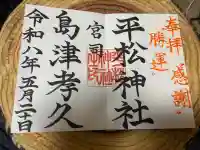 奉拝
感謝
勝運
平松神社
宮司
島津孝久
令和八年五月二十日